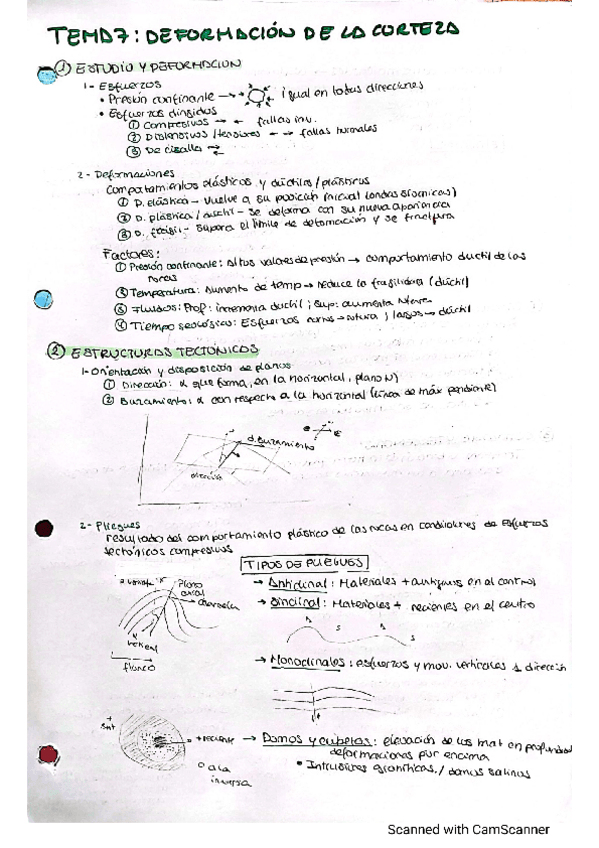 TEMA 7: DEFORMACIÓN DE LA CORTEZA
① ESTUDIO Y DEFORMACION
1- Esfuerzos
• Presión confinante → igual en todas direcciones
• Esfuerzos dirigidos
① Compresivos → ← fallas inv.
② Distensivos / tensores ← → fallas normales
③ De cizalla
2- Deformaciones
Comportamientos elásticos y dúctiles / plásticos
① D. elástica - vuelve a su posición inicial (ondas sísmicas)
② D. plástica / dúctil - se deforma con su nueva apariencia
③ D. frágil - Supera el límite de deformación y se fractura
Factores:
① Presión confinante: altos valores de presión → comportamiento ductil de las
rocas
② Temperatura: Aumento de temp → reduce la fragilidad (dúctil)
③ Fluidos: Prof: incrementa ductil; Sup: aumenta
④ Tiempo geológico: Esfuerzos → rotura; largos → dúctil
② ESTRUCTURAS TECTÓNICAS
1- Orientación y disposición de planos
① Dirección: α que forma, en la horizontal, plano N)
② Buzamiento: α con respecto a la horizontal (línea de máx pendiente)
d. Buzamiento
dirección
2- Pliegues
resultado del comportamiento plástico de las rocas en condiciones de esfuerzos
tectónicos compresivos
TIPOS DE PLIEGUES
Plano
axial
charnela
flanco
→ Anticlinal: Materiales + antiguos en el centro
→ Sinclinal: Materiales + recientes en el centro
A S A S
→ Monoclinales: esfuerzos y mov. verticales 1 dirección
+ reciente
o a la
inversa
→ Domos y cubetas: elevación de los mat en profundidad
deformaciones por encima
• Intrusiones graníticas / domos salinos
Scanned with CamScanner